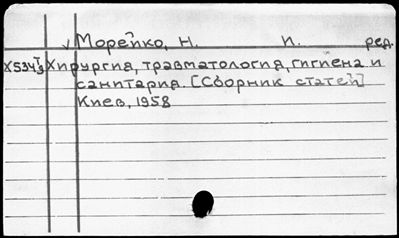 √ Морейко, Н. И. ред.
Х534 1/3 Хирургия, травматология, гигиена и
санитария. [Сборник статей]
Киев, 1958